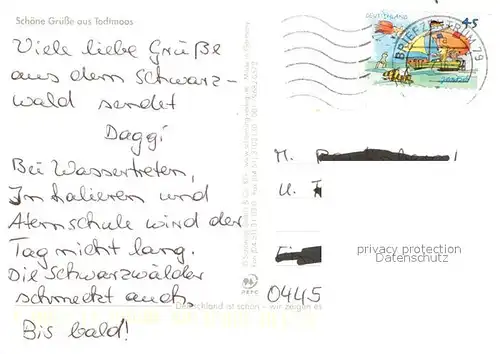 Schöne Grüße aus Todtmoos
Viele liebe Grüße
aus dem Schwarz-
wald sendet
Daggi
Bei Wassertreten,
Inhalieren und
Atemschule wird der
Tag nicht lang.
Die Schwarzwälder
schmeckt auch.
Bis bald!
DEUTSCHLAND
45
BRIEFZENTRUM 79
M.
U.
privacy protection
Datenschutz
0445
Deutschland ist schön - wir zeigen es